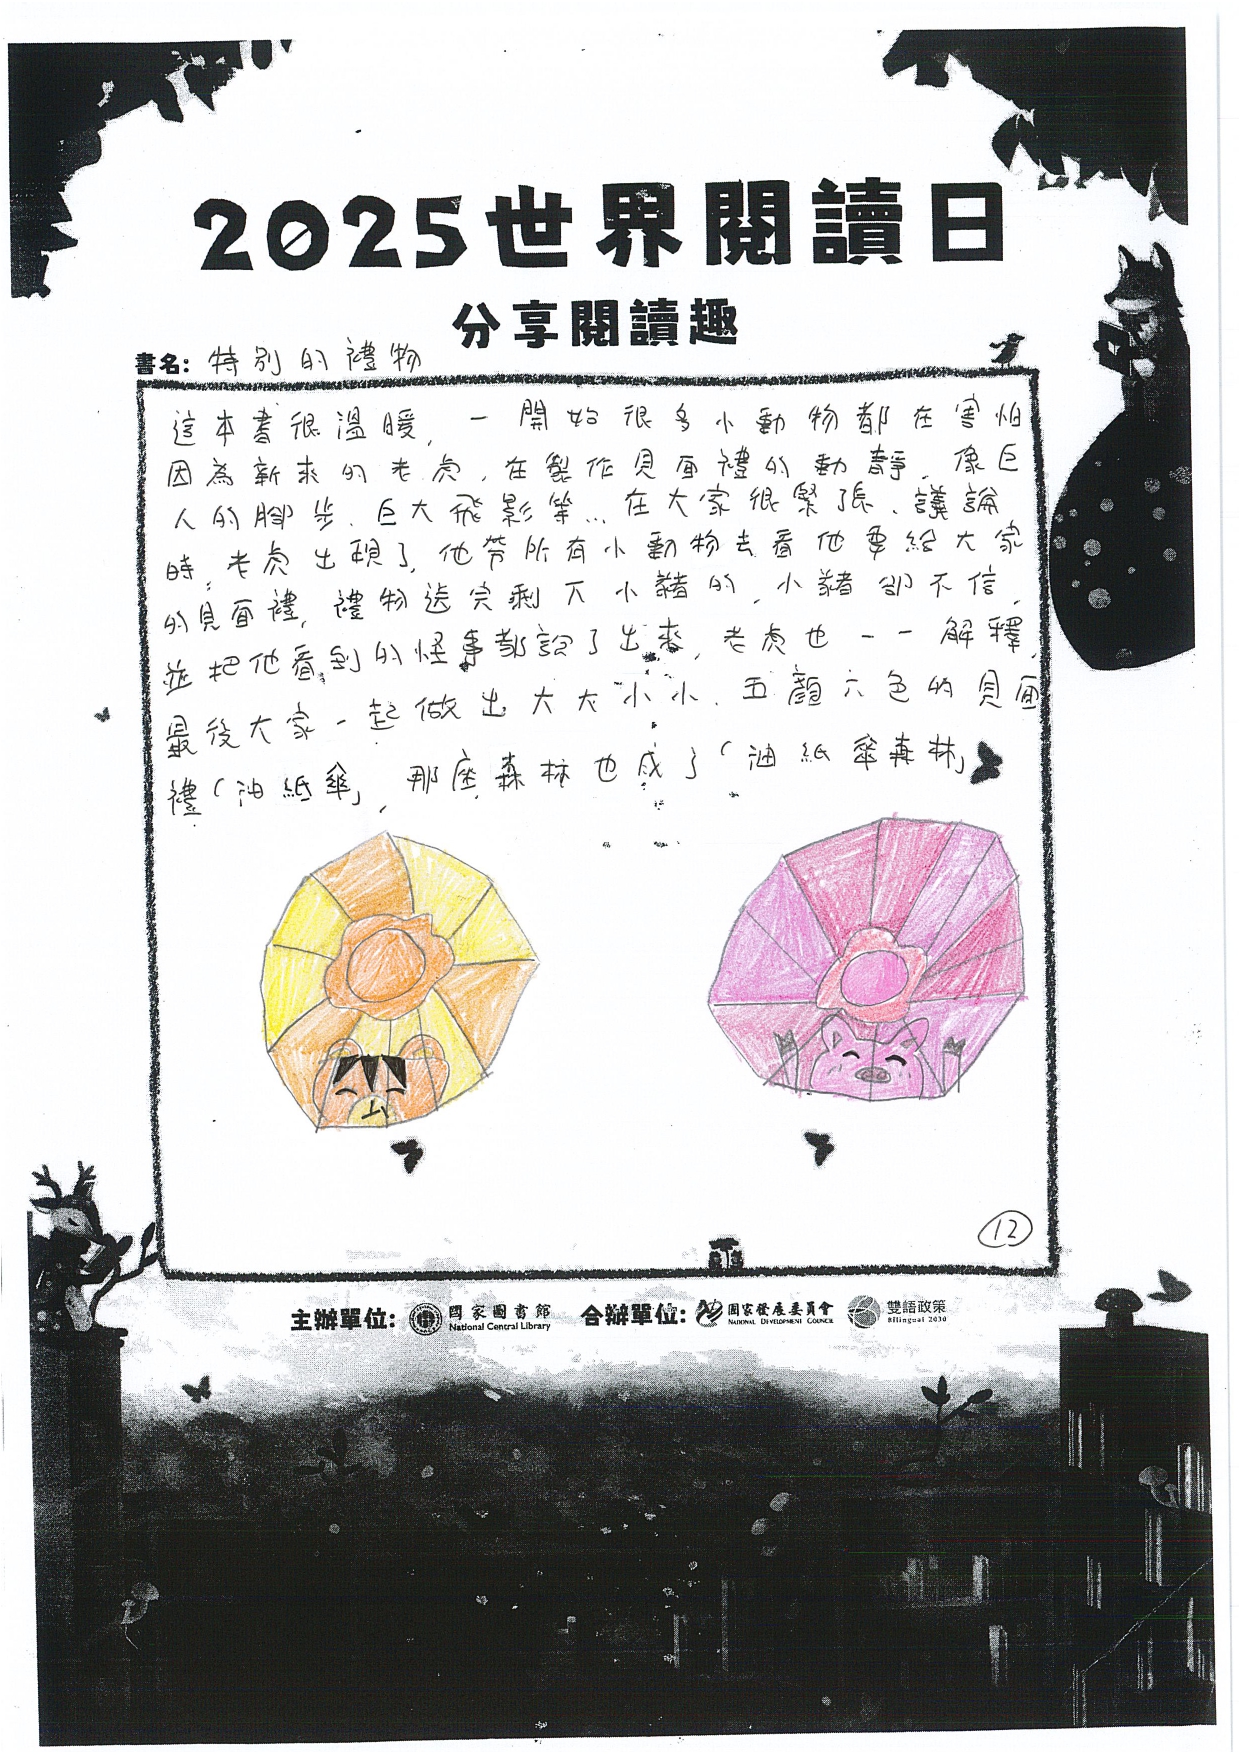 2025世界閱讀日
分享閱讀趣
書名: 特別的禮物
這本書很溫暖, 一開始很多小動物都在害怕
因為新來的老虎, 在製作見面禮的動靜, 像巨
人的腳步、巨大飛影等... 在大家很緊張、議論
時, 老虎出現了, 他帶所有小動物去看他要給大家
的見面禮, 禮物送完剩下小豬的, 小豬卻不信,
並把他看到的怪事都說了出來, 老虎也一一解釋,
最後大家一起做出大大小小、五顏六色的見面
禮「油紙傘」, 那座森林也成了「油紙傘森林」
12
主辦單位: 國家圖書館 合辦單位: 國家發展委員會 雙語政策
National Central Library NATIONAL DEVELOPMENT COUNCIL Bilingual 2030